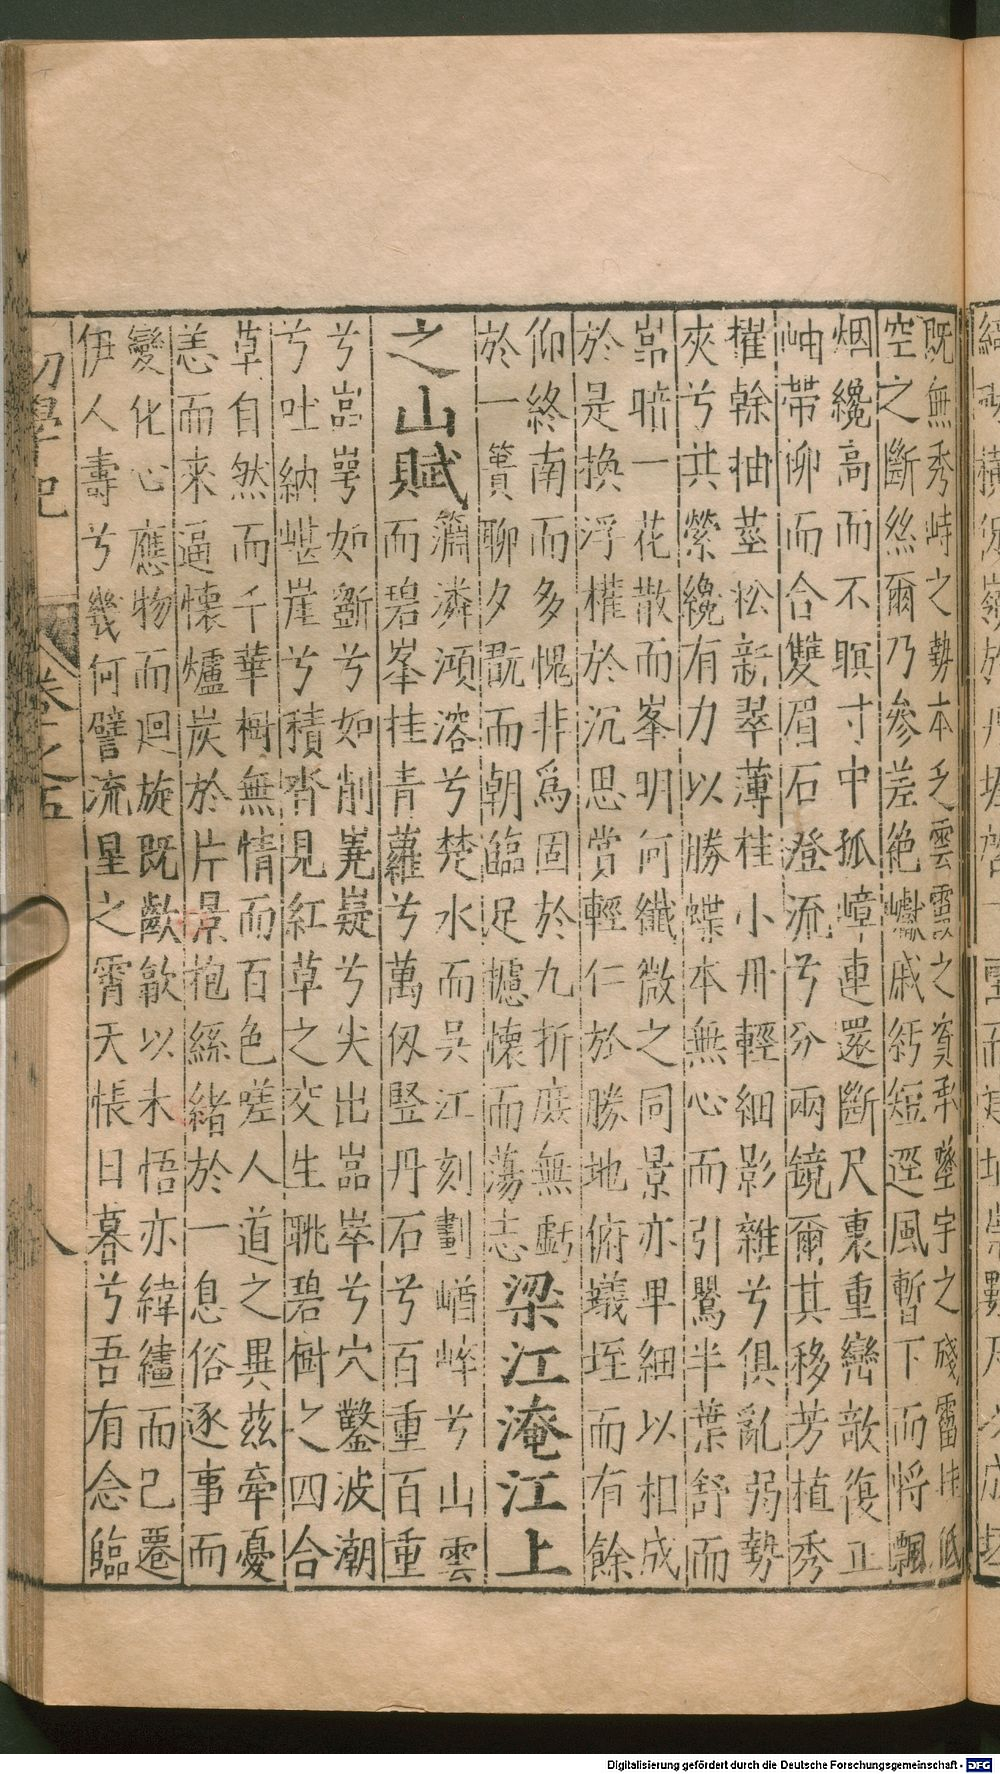 既無秀峙之勢本乏雲霞之資承蹔宇之殘霤挂低
空之斷絲爾乃參差絶巘戚紆短逕風暫下而將飄
烟纔高而不暝寸中孤嶂連還斷尺裏重巒欹復正
岫帶泖而合雙眉石澄流兮分兩鏡爾其移芳植秀
擢幹抽莖松新翠薄桂小丹輕細影雜兮俱亂弱勢
夾兮共縈纔有力以勝蝶本無心而引鸎半葉舒而
嵓暗一花散而峯明何纖微之同景亦卑細以相成
於是換浮權於沉思賞輕仁於勝地俯蟻垤而有餘
仰終南而多愧非爲固於九折庶無虧
於一簣聊夕翫而朝臨足攄懷而蕩志梁江淹江上
之山賦潚潾澒溶兮楚水而吳江刻劃嶆崪兮山雲
而碧峯挂青蘿兮萬仭竪丹石兮百重百重
兮嵓崿如斵兮如削嵬嶷兮尖出嵓崒兮穴鑿波潮
兮吐納嵁崖兮積沓見紅草之交生眺碧樹之四合
草自然而千華樹無情而百色嗟人道之異茲牽憂
恙而來逼懷爐炭於片景抱絲緒於一息俗逐事而
變化心應物而迴旋既歡歙以未悟亦緯繣而已遷
伊人壽兮幾何譬流星之霄天悵日暮兮吾有念臨
初學記 卷之五 八